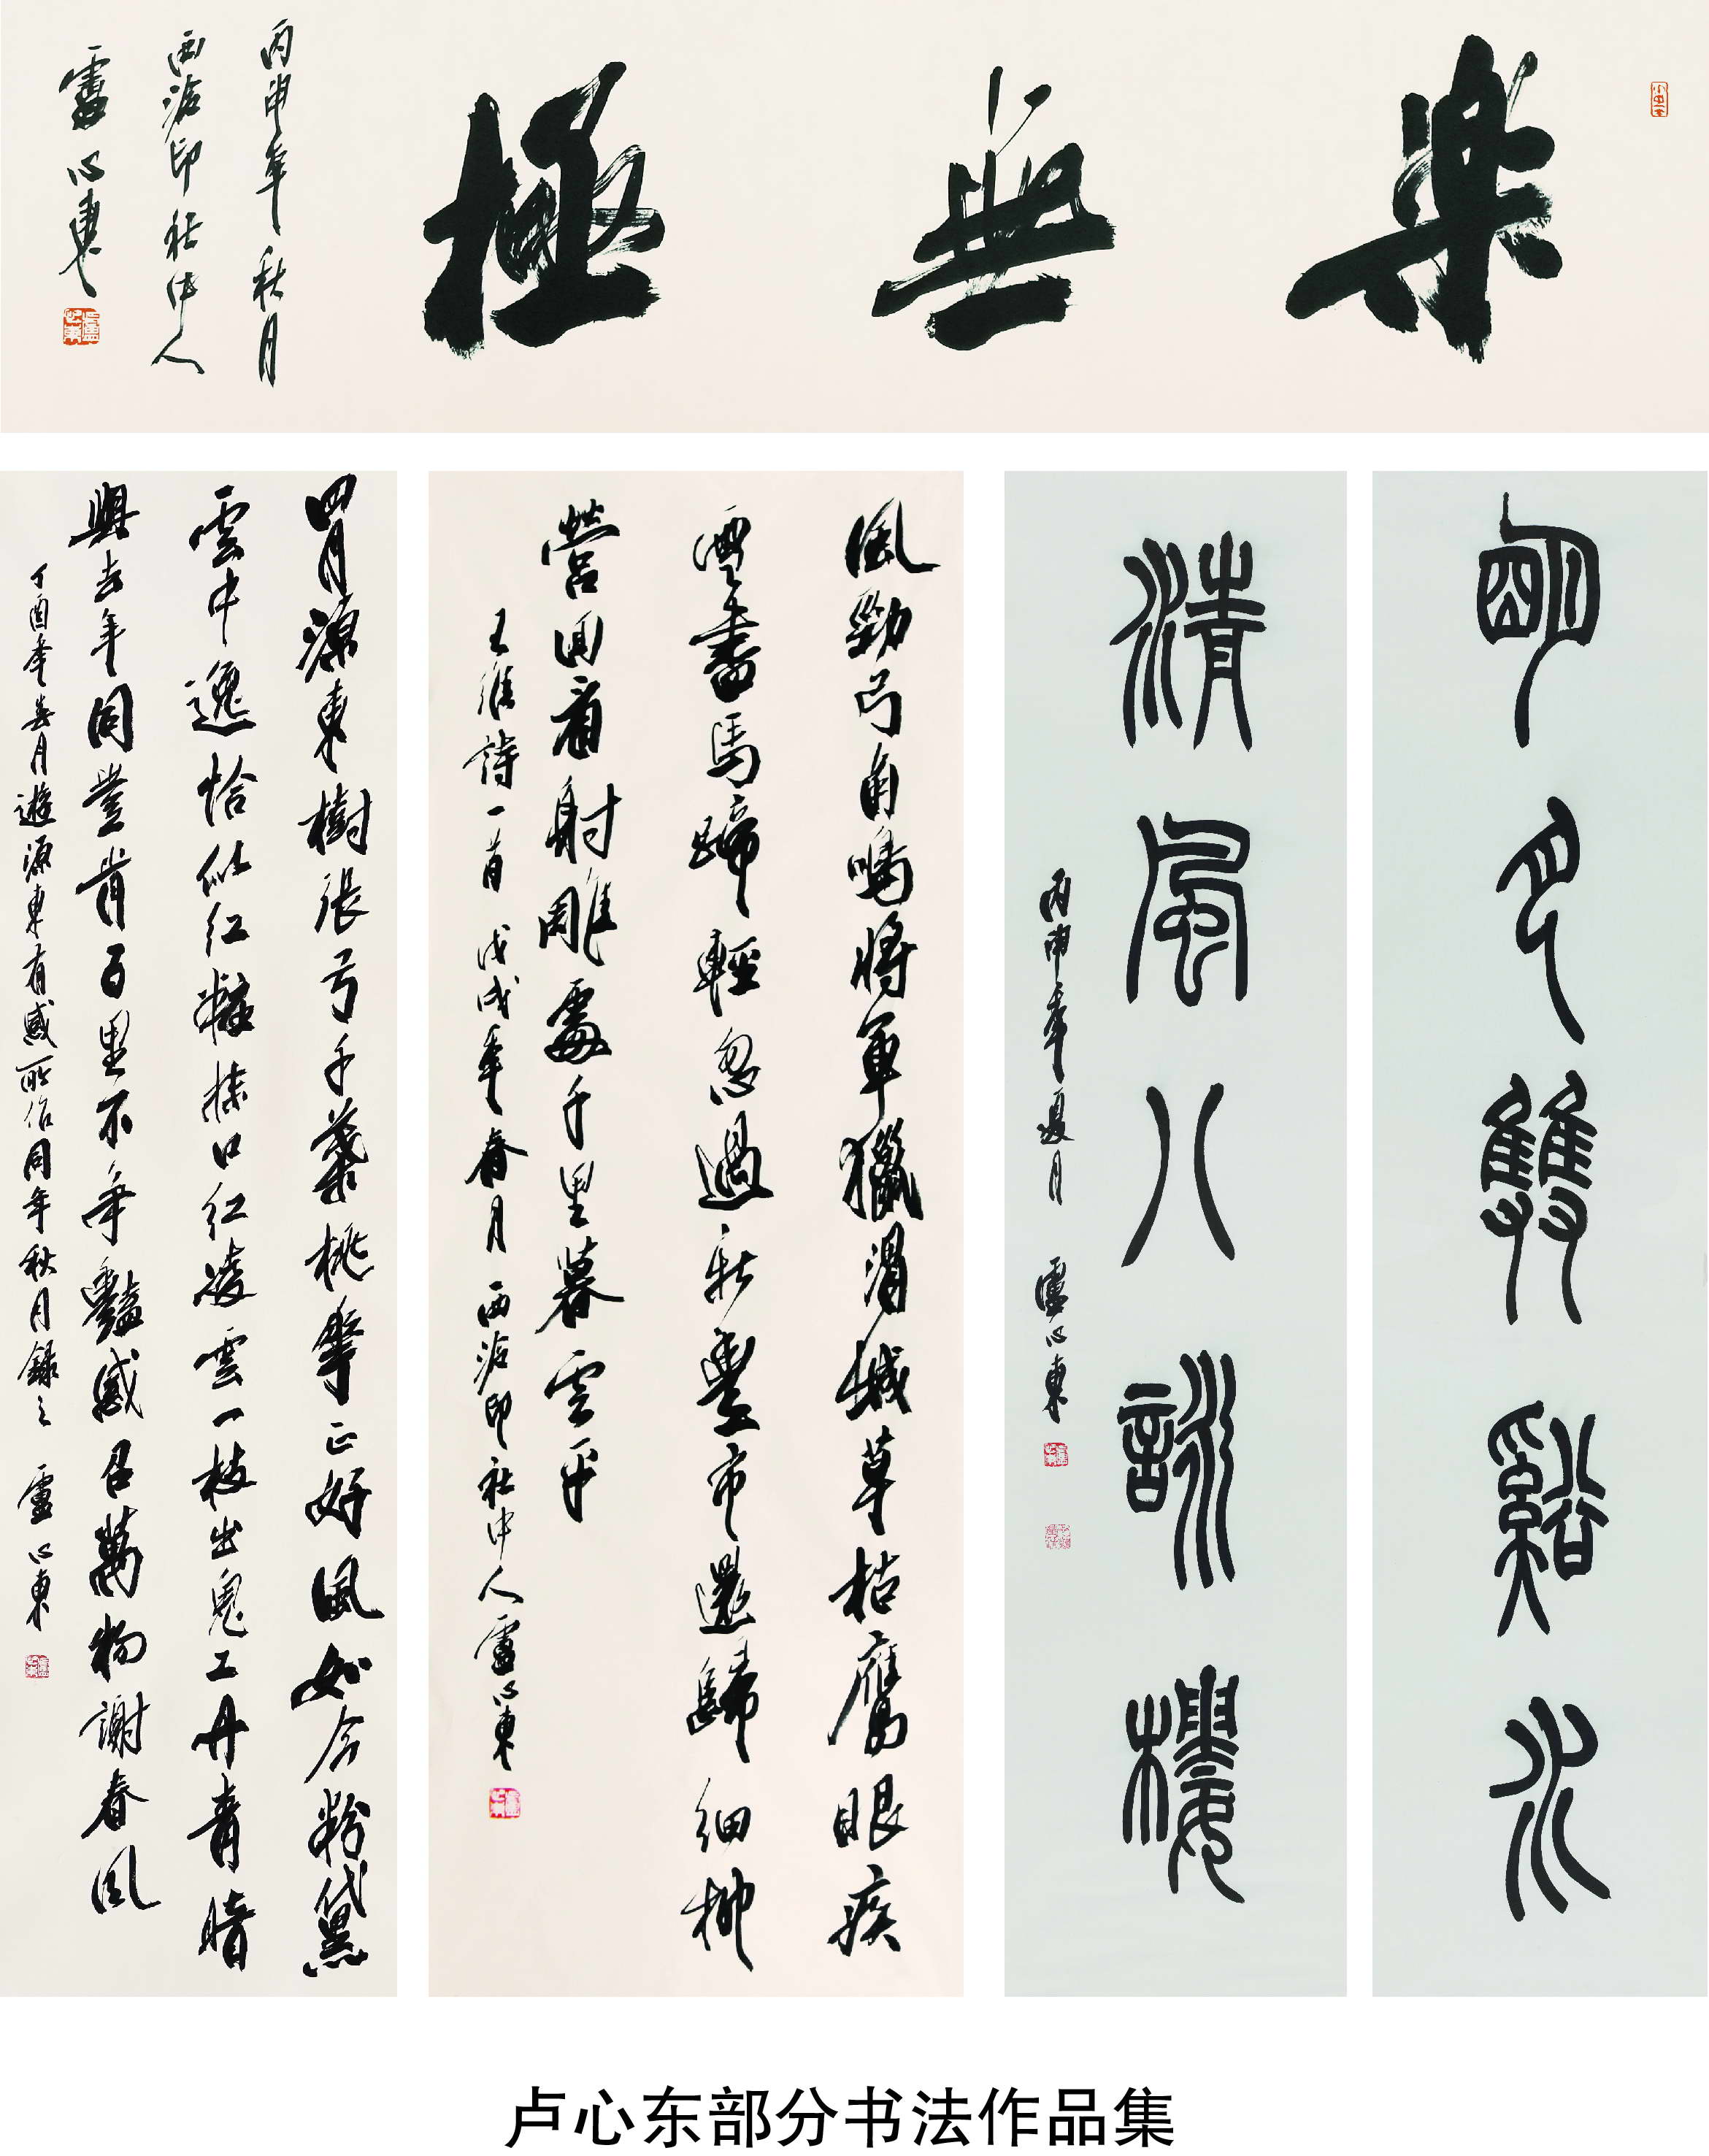 樂無極
丙申年秋月
西泠印社中人
盧心東
明月雙谿水
清風八詠樓
丙申年夏月 盧心東
風勁弓角鳴將軍獵渭城草枯鷹眼疾
雪盡馬蹄輕忽過新豐市還歸細柳
營回看射雕處千里暮雲平
王維詩一首 戊戌年春月 西泠印社中人盧心東
四月源東樹張弓千葉桃擎正好風如含粉黛
雲中逸恰似紅粧抹口紅凌雲一枝出鬼工丹青暗
興去年同豈肯百里不爭豔感召萬物謝春風
丁酉年春月遊源東有感所作同年秋月錄之 盧心東
卢心东部分书法作品集